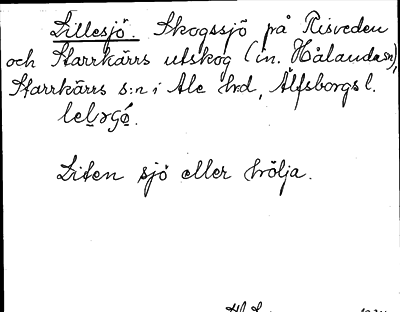 Lillesjö. Skogssjö på Risveden
och Starrkärrs utskog (in. Hålanda sn),
Starrkärrs s:n i Ale hrd, Älfsborgs l.
Liten sjö eller hölja.